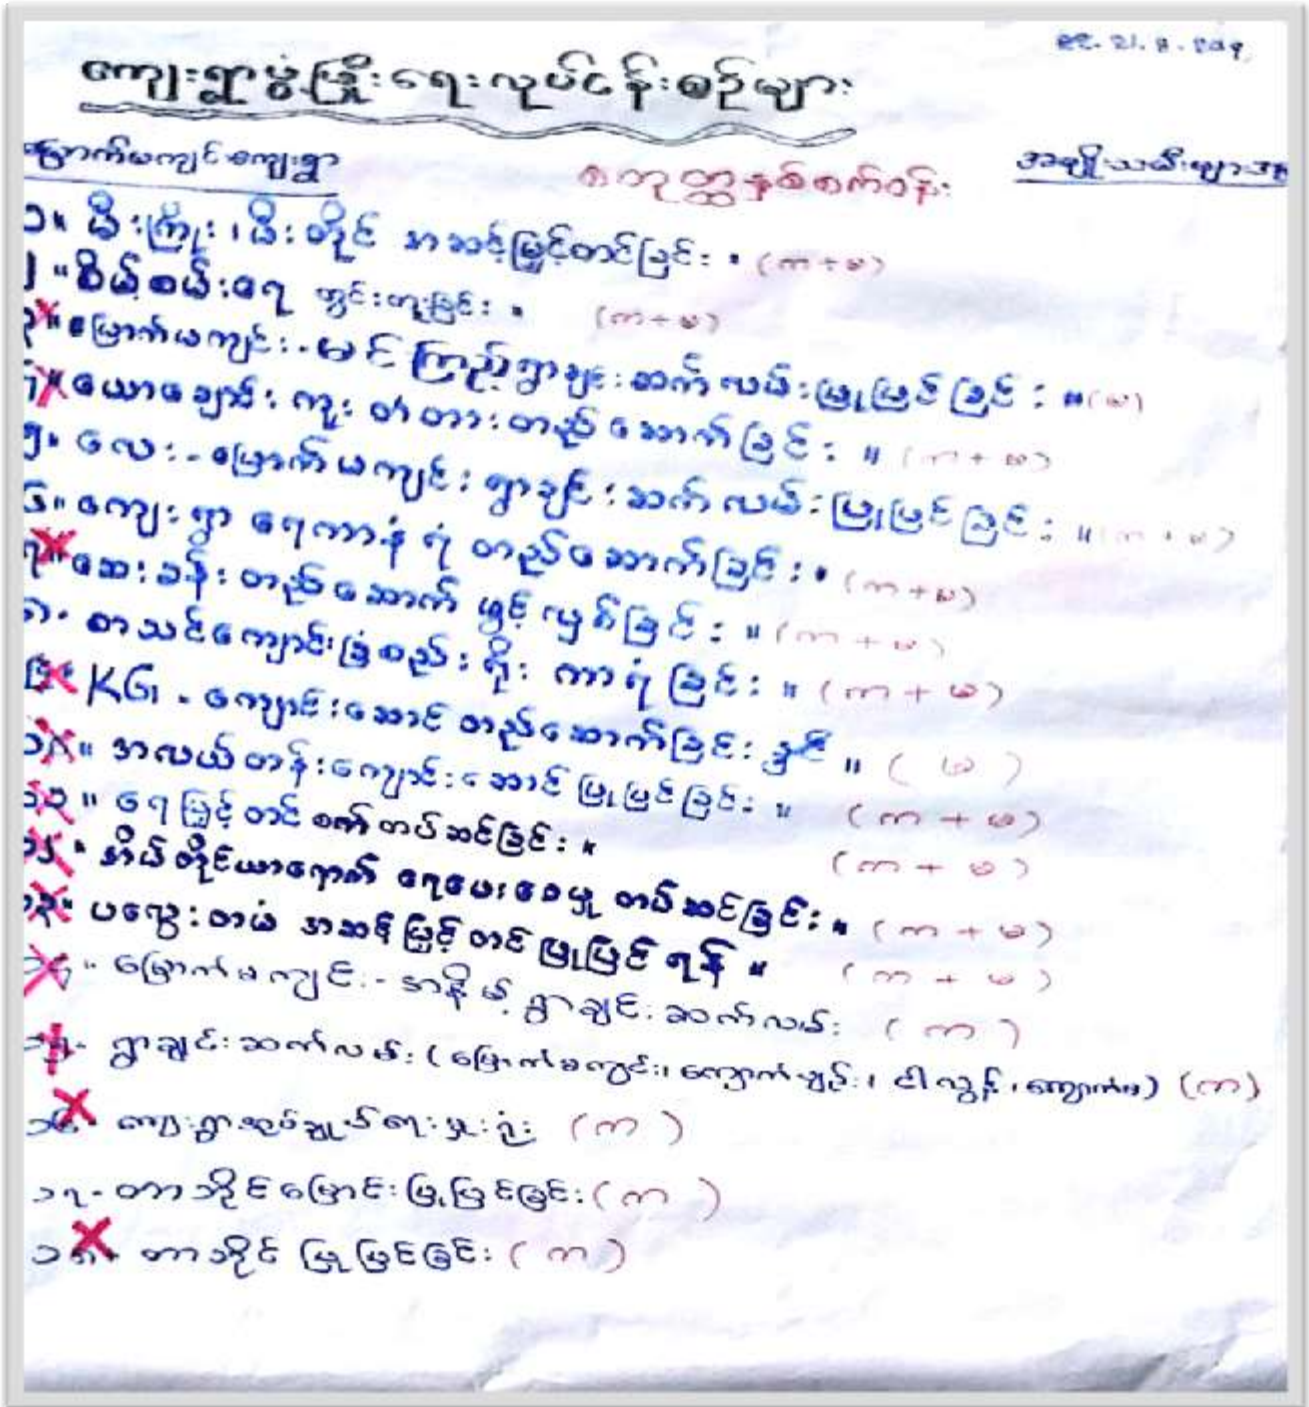 ကျေးရွာဖွံ့ဖြိုးရေးလုပ်ငန်းစဉ်များ
မြောက်မကျင်းကျေးရွာ စတုတ္ထနှစ်စက်ဝန်း အမျိုးသမီးများ
၁။ မီးကြိုး၊ မီးတိုင် အဆင့်မြှင့်တင်ခြင်း။ (က+မ)
၂။ စိမ့်စမ်းရေ တွင်းတူးခြင်း။ (က+မ)
၃။ မြောက်မကျင်း-မင်ကြည့်ရွာချင်းဆက်လမ်းပြုပြင်ခြင်း။ (မ)
၄။ ယောချောင်းကူးတံတားတည်ဆောက်ခြင်း။ (က+မ)
၅။ လေး-မြောက်မကျင်းရွာချင်းဆက်လမ်းပြုပြင်ခြင်း။ (က+မ)
၆။ ကျေးရွာ ရေကာနံရံ တည်ဆောက်ခြင်း။ (က+မ)
၇။ ဆေးခန်းတည်ဆောက် ဖွင့်လှစ်ခြင်း။ (က+မ)
၈။ စာသင်ကျောင်းခြံစည်းရိုး ကာရံခြင်း။ (က+မ)
KG-ကျောင်းဆောင်တည်ဆောက်ခြင်း ။ (မ)
၁၀။ အလယ်တန်းကျောင်းဆောင်ပြုပြင်ခြင်း။ (က+မ)
၁၁။ ရေမြှင့်တင်စက်တပ်ဆင်ခြင်း။ (က+မ)
၁၂။ အိမ်တိုင်ယာရောက် ရေပေးဝေမှု တပ်ဆင်ခြင်း။ (က+မ)
၁၃။ ပလွေးတမံ အဆင့်မြှင့်တင်ပြုပြင်ရန်။ (က+မ)
၁၄။ မြောက်မကျင်း-အနိမ့်ရွာချင်းဆက်လမ်း (က)
၁၅။ ရွာချင်းဆက်လမ်း (မြောက်မကျင်း၊ ကျောက်မျဉ်း၊ ငါလွန့်၊ ကျောက်မ) (က)
၁၆။ ကျေးရွာအုပ်ချုပ်ရေးမှူးရုံး (က)
၁၇။ တာဘိုင်မြောင်းပြုပြင်ခြင်း (က)
၁၈။ တာဘိုင်ပြုပြင်ခြင်း (က)